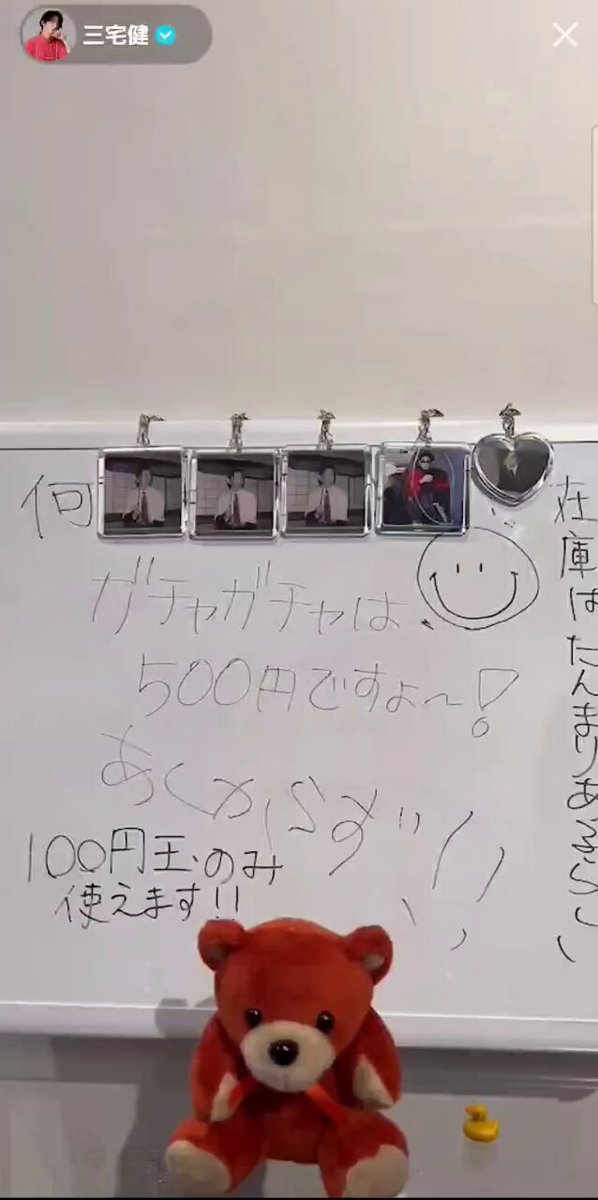 三宅健
何
ガチャガチャは、
500円ですよ〜!
あしからずッ!!
100円玉のみ
使えます!!
在庫はたんまりあるらしい